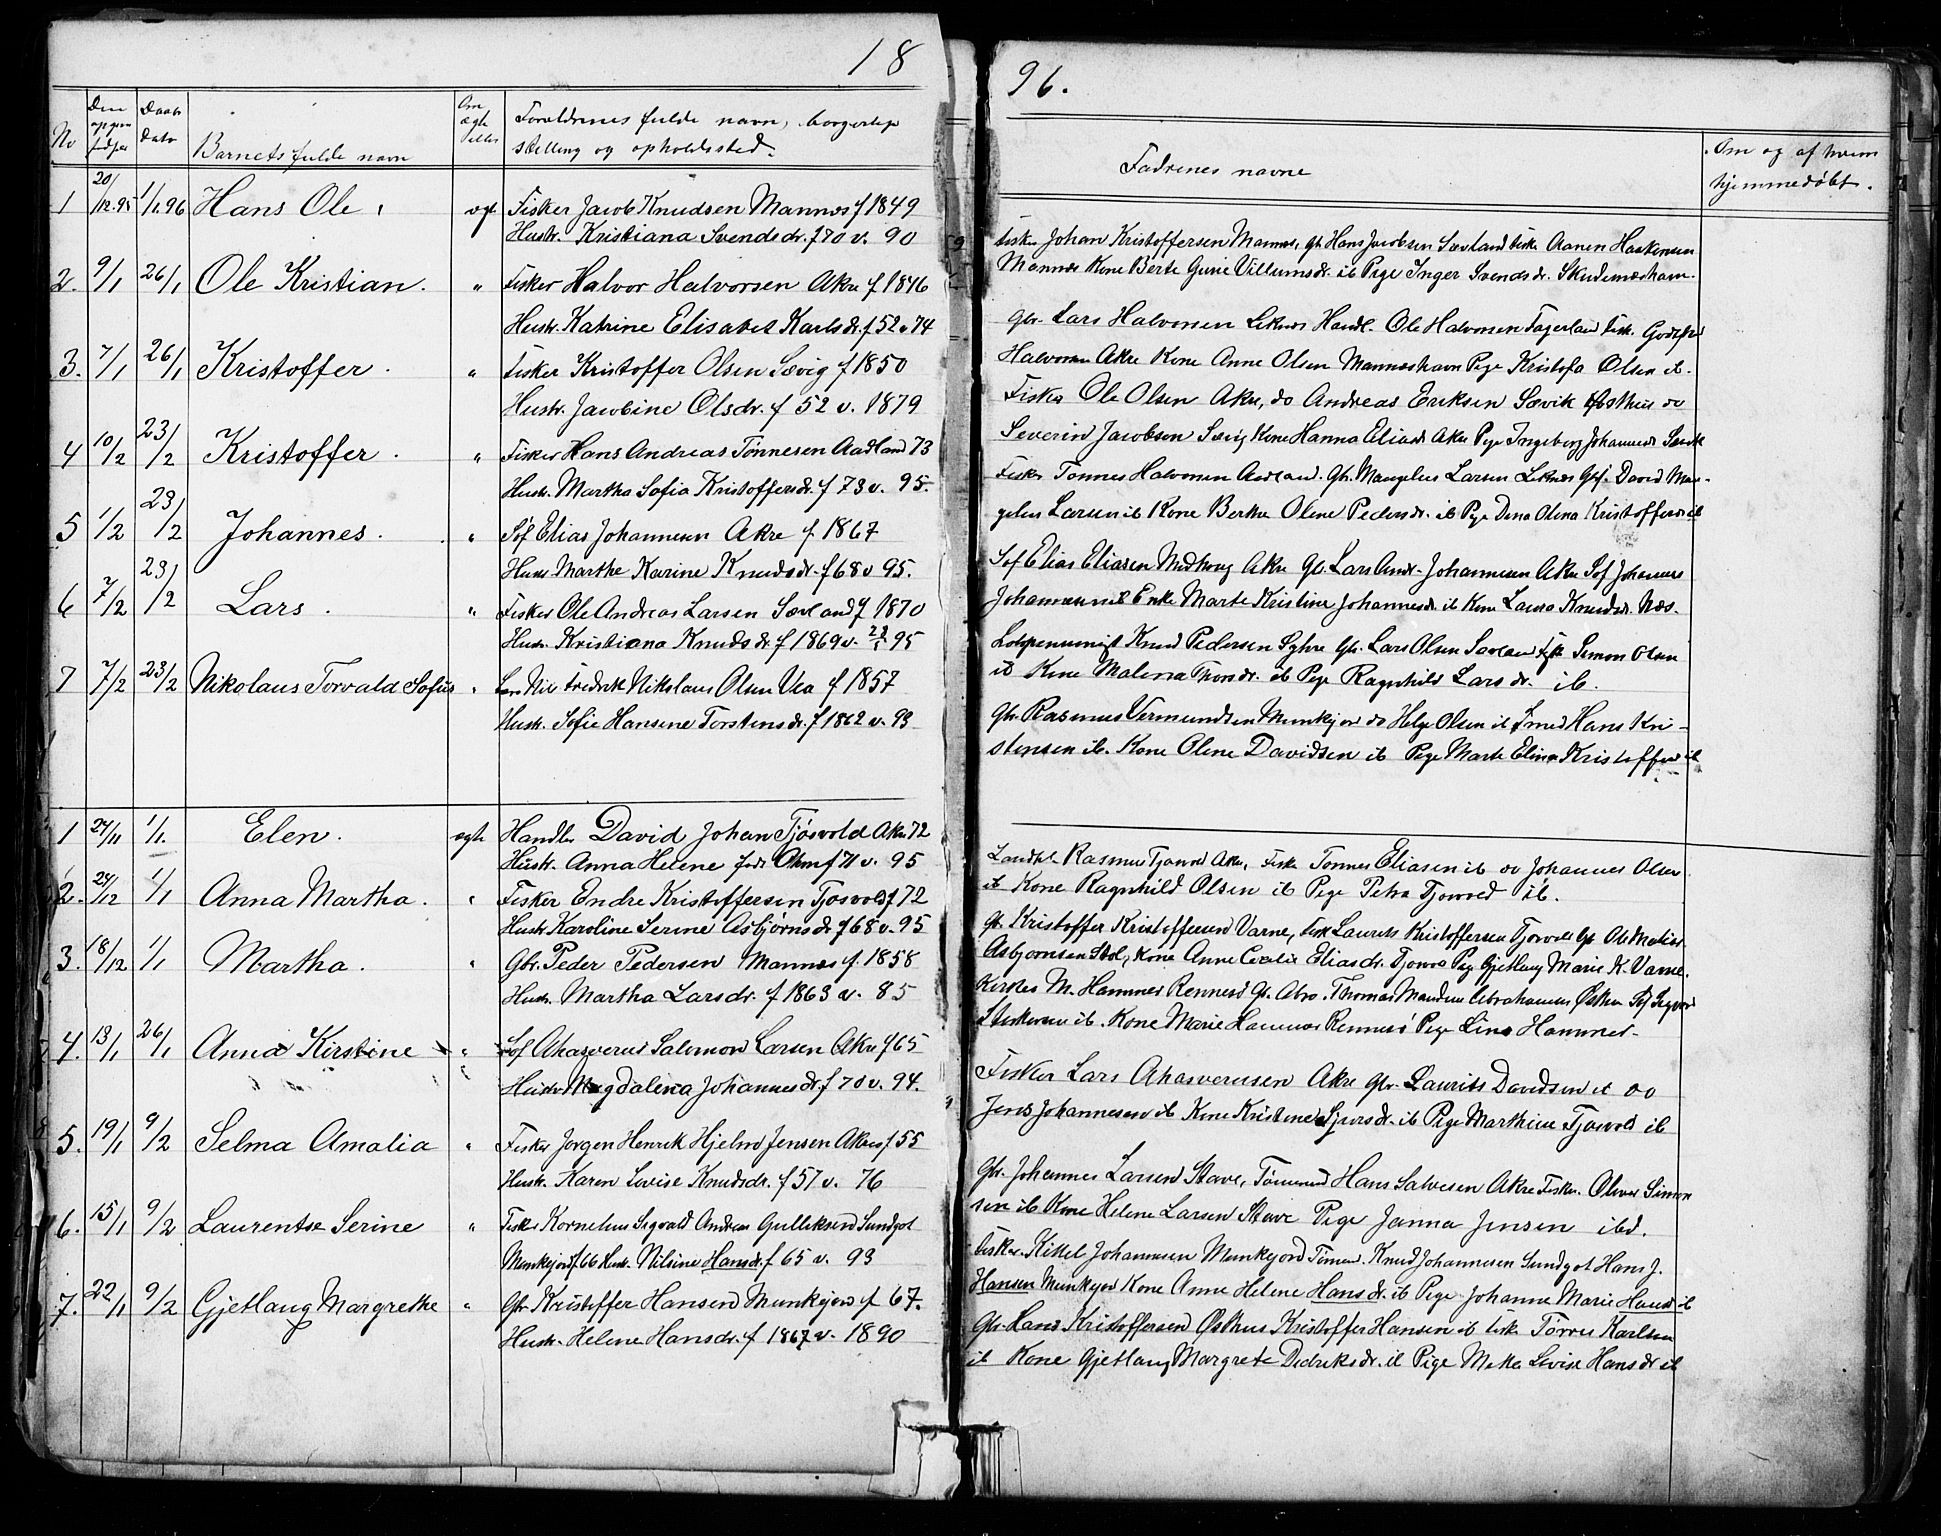 18
No Den opgiv fødsel Daabs dato Barnets fulde navn Om ægte eller Forældrenes fulde navn, borgerlige
stilling og opholdssted.
1 20/12.95 1/1.96 Hans Ole ægt Fisker Jacob Knudsen Mannes f 1849
Hustr. Kristiana Svendsdr. f 70 v. 90
2. 9/1 26/1 Ole Kristian. " Fisker Halvor Halvorsen Akre f 1846
Hustr. Katrine Elisabet Karlsdr. f 52 v 74
3. 7/1 26/1 Kristoffer. " Fisker Kristoffer Olsen Sævig f 1850
Hustr. Jacobine Olsdr. f 52 v. 1879
4 10/2 23/2 Kristoffer. " Fisker Hans Andreas Tønnesen Aadland 73
Hustr. Martha Sofia Kristoffersdr. f 73 v. 95.
5 1/2 23/2 Johannes. " Søf Elias Johannesen Akre f 1867
Hustr Marthe Karine Knudsdr. f 68 v 95.
6 7/2 23/2 Lars. " Fisker Ole Andreas Larsen Sævland f 1870
Hustr. Kristiana Knudsdr f 1869 v. 95
7 7/2 23/2 Nikolaus Torvald Sofus " Fredrik Nikolaus Olsen Vea f 1857
Hustr. Sofie Hansine Torstensdr. f 1862 v. 93
1 24/11 1/1. Elen. ægte Handler David Johan Tjøsvold Akre 72
Hustr. Anna Helene født Ohm f 71 v. 95
2. 24/12 1/1 Anna Martha. " Fisker Endre Kristoffersen Tjosvold f 72
Hustr Karoline Serine Asbjørnsdr f 68 v. 95
3. 18/12 1/1 Martha. " Gbr. Peder Pedersen Mannes f. 1858
Hustr. Martha Larsdr. f 1863 v. 85
4. 13/1 26/1 Anna Kirstine " Søf Ahasverus Salomon Larsen Akre f 65
Hustr Magdalena Johannesdr. f 70 v. 94.
5. 19/1 9/2 Selma Amalia " Fisker Jørgen Henrik Hjelm Jensen Akre f 55
Hustr. Karen Lovise Knudsdr. f 57 v. 76
6. 15/1 9/2 Laurentse Serine " Fisker Kornelius Sigvald Andreas Gulliksen Sundgot
Munkejord f 66 Hustr. Nilsine Hansdr. f 65 v. 93
7. 22/1 9/2 Gjetlaug Margrethe " Gbr Kristoffer Hansen Munkejord f 67.
Hustr. Helene Hansdr. f 1867 v. 1890
96.
Fadrenes navne Om og af hvem
hjemmedøbt.
Fisker Johan Kristoffersen Mannes, gbr Hans Jacobsen Sævland Fisk Aanen Haakonsen
Mannes Kone Berte Gurie Villumsdr. ib Pige Inger Svendsdr. Skudenæshavn.
Gbr. Lars Halvorsen Liknes Handl. Ole Halvorsen Fagerland Fisk. Godtfred
Halvorsen Akre Kone Anne Olsen Manneshavn Pige Kristofa Olsen ib.
Fisker Ole Olsen Akre, do Andreas Eriksen Sævik Østhus do
Severin Jacobsen Sævig Kone Hanna Eliasdr Akre Pige Ingeborg Johannesdr Sandh
Fisker Tønnes Halvorsen Aadland. Gbr. Mangelus Larsen Liknes Gbf. David Man-
gelus Larsen ib Kone Berthe Olene Pedersdr. ib Pige Dina Olena Kristoffersdr ib
Søf Elias Eliasen Medhaug Akre Gb. Lars Andr. Johannesen Akre Søf Johannes
Johannesen ib Enke Marte Kristine Johannesdr. ib Kone Laura Knudsdr. Næs.
Knud Pedersen Syhre Gbr. Lars Olsen Sævland Fisk Simon Olsen
ib Kone Malena Thorsdr. ib Pige Ragnhild Larsdr. ib.
Gbr. Rasmus Vermundsen Munkejord do Helge Olsen ib Smed Hans Kri-
stensen ib. Kone Olene Davidsen ib Pige Marte Elina Kristoffersd ib
Landh. Rasmus Tjosvol Akre, Fisk Tønnes Eliasen ib do Johannes Olsen
ib Kone Ragnhild Olsen ib Pige Petra Tjosvold ib.
Gb. Kristoffer Kristoffersen Varne, Fisk Laurits Kristoffersen Tjosvold Gb Ole Matias
Asbjørnsen Stol, Kone Anne Cecilie Eliasdr. Tjosvo Pige Gjetlaug Marie K. Varne.
Kirkes M. Hammer Rennesø Gb. Abra. Thomas Abrahamsen Østhus Søf Sigvard
ib. Kone Marie Hammer Rennesø Pige Lina Hammer.
Fisker Lars Ahasverusen Akre Gbr. Laurits Davidsen ib do
Jens Johannesen ib Kone Kristine Sjursdr. ib Pige Marthine Tjosvold ib
Gbr. Johannes Larsen Stave, Tømmermd Hans Salvesen Akre Fisker. Oliver Simon
sen ib Kone Helene Larsen Stave Pige Janna Jensen ibd.
Fisker Kittel Johannesen Munkejord Tømm. Knud Johannesen Sundgot Hans J.
Hansen Munkejor Kone Anne Helene Hansdr. ib Pige Johanne Marie Hansd ib
Gbr. Hans Kristoffersen Østhus Kristoffer Hansen ib Fisk Tørres Karlsen
ib Kone Gjetlaug Margrete Dedriksdr. ib Pige Meka Lovise Hansdr ib